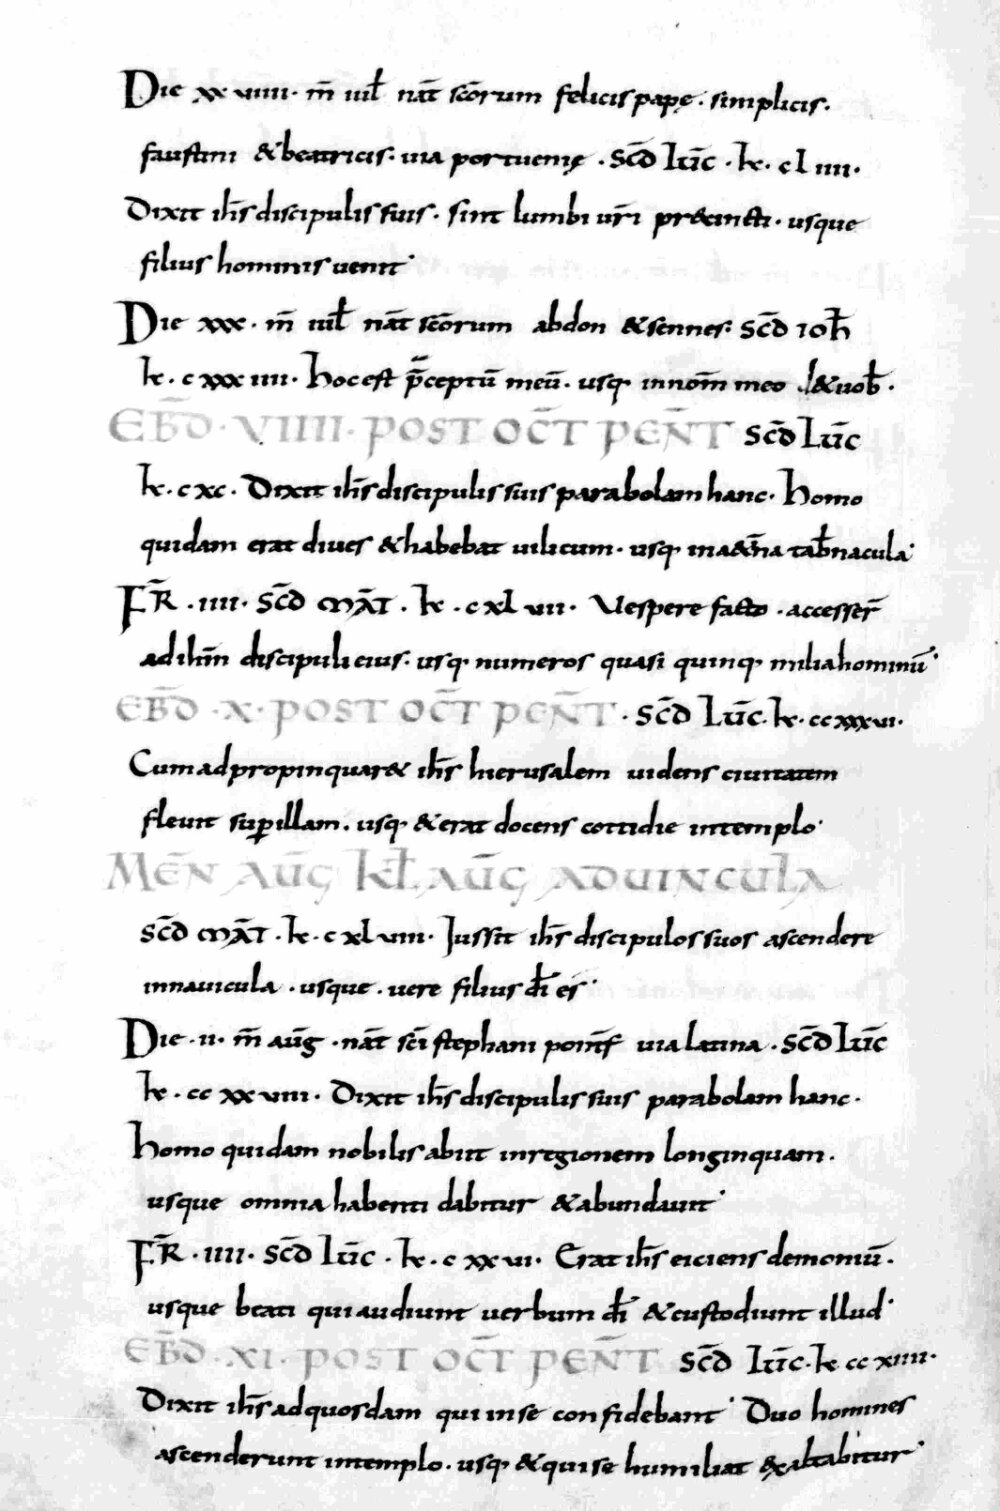 Die xx viiii · m̄ iul̄ nat̄ scōrum felicis papę · simplicis ·
faustini & beatricis · uia portuensę · Scd̄ Luc̄ · k · cl iiii ·
Dixit ih̄s discipulis suis · sint lumbi ur̄i pr&cincti · usque
filius hominis uenit
Die xxx · m̄ iul̄ nat̄ scōrum abdon & sennes : Scd̄ ioh̄
k · c xxx iiii · hoc est p̄ceptū meū · usq · in nom̄ meo d&uob̄ ·
EBD̄ · VIIII · POST OCT̄ PEN̄T Scd̄ Luc̄
k · c xc · Dixit ih̄s discipulis suis parabolam hanc · homo
quidam erat diues & habebat uilicum · usq · in a&n̄a tab̄nacula
FR̄ · iiii · Scd̄ MAT̄ · k · c xl vii · Vespere facto · accesser̄
ad ih̄m discipuli eius · usq · numeros quasi quinq · milia hominū
EBD̄ · X · POST OCT̄ PEN̄T · Scd̄ Luc̄ · k · cc xxx vi ·
Cum adpropinquar& ih̄s hierusalem uidens ciuitatem
fleuit sup illam · usq · & erat docens cottidie in templo
MEN̄ AUḠ KL̄ AUḠ ADUINCULA
Scd̄ MAT̄ · k · c xl viii · Jussit ih̄s discipulos suos ascendere
in nauicula · usque · uere filius dī es
Die · ii · m̄ auḡ · nat̄ scī stephani pontif̄ uia latina · Scd̄ Luc̄
k · cc xx viii · Dixit ih̄s discipulis suis parabolam hanc ·
homo quidam nobilis abiit in regionem longinquam ·
usque omnia habenti dabitur & abundauit
FR̄ · iiii · Scd̄ Luc̄ · k · c xx vi · Erat ih̄s eiciens demoniū ·
usque beati qui audiunt uerbum dī & custodiunt illud
EBD̄ · XI · POST OCT̄ PEN̄T Scd̄ Luc̄ · k cc xiiii ·
Dixit ih̄s ad quosdam qui in se confidebant Duo homines
ascenderunt in templo · usq · & qui se humiliat exaltabitur